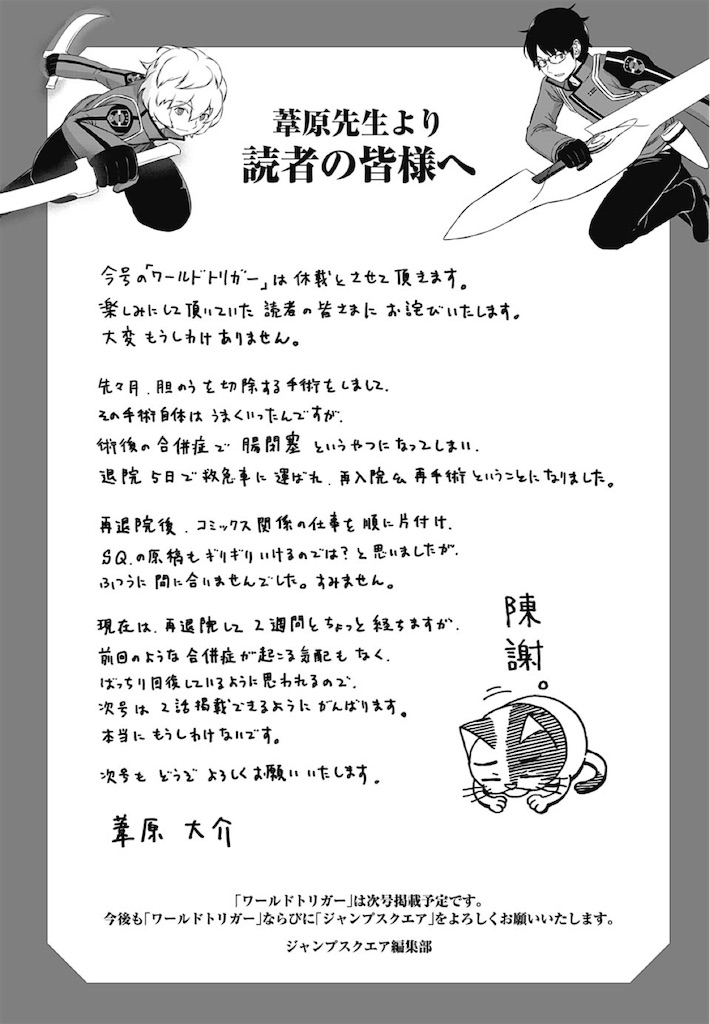 葦原先生より
読者の皆様へ
今号の「ワールドトリガー」は休載とさせて頂きます。
楽しみにして頂いていた読者の皆さまにお詫びいたします。
大変もうしわけありません。
先々月、胆のうを切除する手術をしまして、
その手術自体はうまくいったんですが、
術後の合併症で腸閉塞というやつになってしまい、
退院5日で救急車に運ばれ、再入院&再手術ということになりました。
再退院後、コミックス関係の仕事を順に片付け、
SQ.の原稿もギリギリいけるのでは?と思いましたが、
ふつうに間に合いませんでした。すみません。
現在は、再退院して2週間とちょっと経ちますが、
前回のような合併症が起こる気配もなく、
ばっちり回復しているように思われるので、
次号は2話掲載できるようにがんばります。
本当にもうしわけないです。
次号もどうぞよろしくお願いいたします。
葦原大介
陳謝。
「ワールドトリガー」は次号掲載予定です。
今後も「ワールドトリガー」ならびに「ジャンプスクエア」をよろしくお願いいたします。
ジャンプスクエア編集部